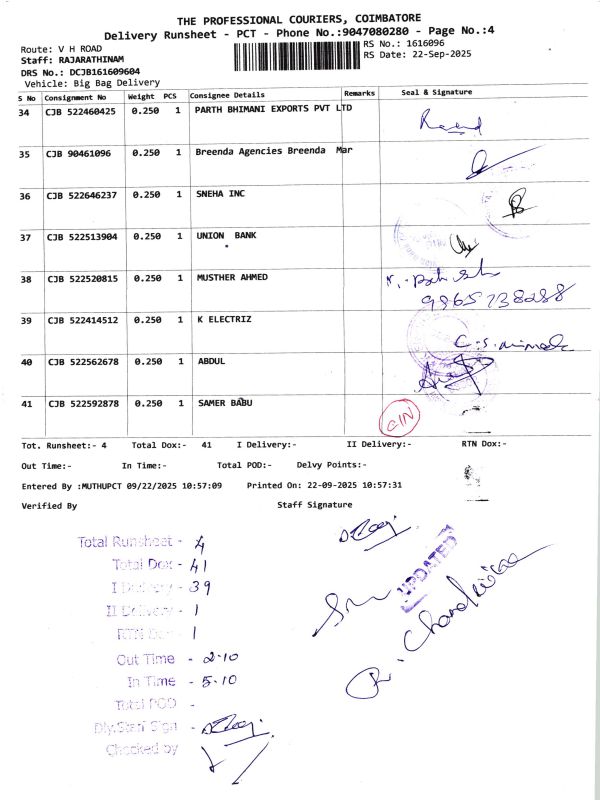 THE PROFESSIONAL COURIERS, COIMBATORE
Delivery Runsheet - PCT - Phone No.:9047080280 - Page No.:4
Route: V H ROAD RS No.: 1616096
Staff: RAJARATHINAM RS Date: 22-Sep-2025
DRS No.: DCJB161609604
Vehicle: Big Bag Delivery
S No Consignment No Weight PCS Consignee Details Remarks Seal & Signature
34 CJB 522460425 0.250 1 PARTH BHIMANI EXPORTS PVT LTD
35 CJB 90461096 0.250 1 Breenda Agencies Breenda Mar
36 CJB 522646237 0.250 1 SNEHA INC
37 CJB 522513904 0.250 1 UNION BANK
38 CJB 522520815 0.250 1 MUSTHER AHMED
9865738288
39 CJB 522414512 0.250 1 K ELECTRIZ
40 CJB 522562678 0.250 1 ABDUL
41 CJB 522592878 0.250 1 SAMER BABU
Tot. Runsheet:- 4 Total Dox:- 41 I Delivery:- II Delivery:- RTN Dox:-
Out Time:- In Time:- Total POD:- Delvy Points:-
Entered By :MUTHUPCT 09/22/2025 10:57:09 Printed On: 22-09-2025 10:57:31
Verified By Staff Signature
Total Runsheet - 4
Total Dox - 41
I Delivery - 39
II Delivery - 1
RTN Dox - 1
Out Time - 2.10
In Time - 5.10
Total POD -
Dly.Staff Sign -
Checked by
UPDATED